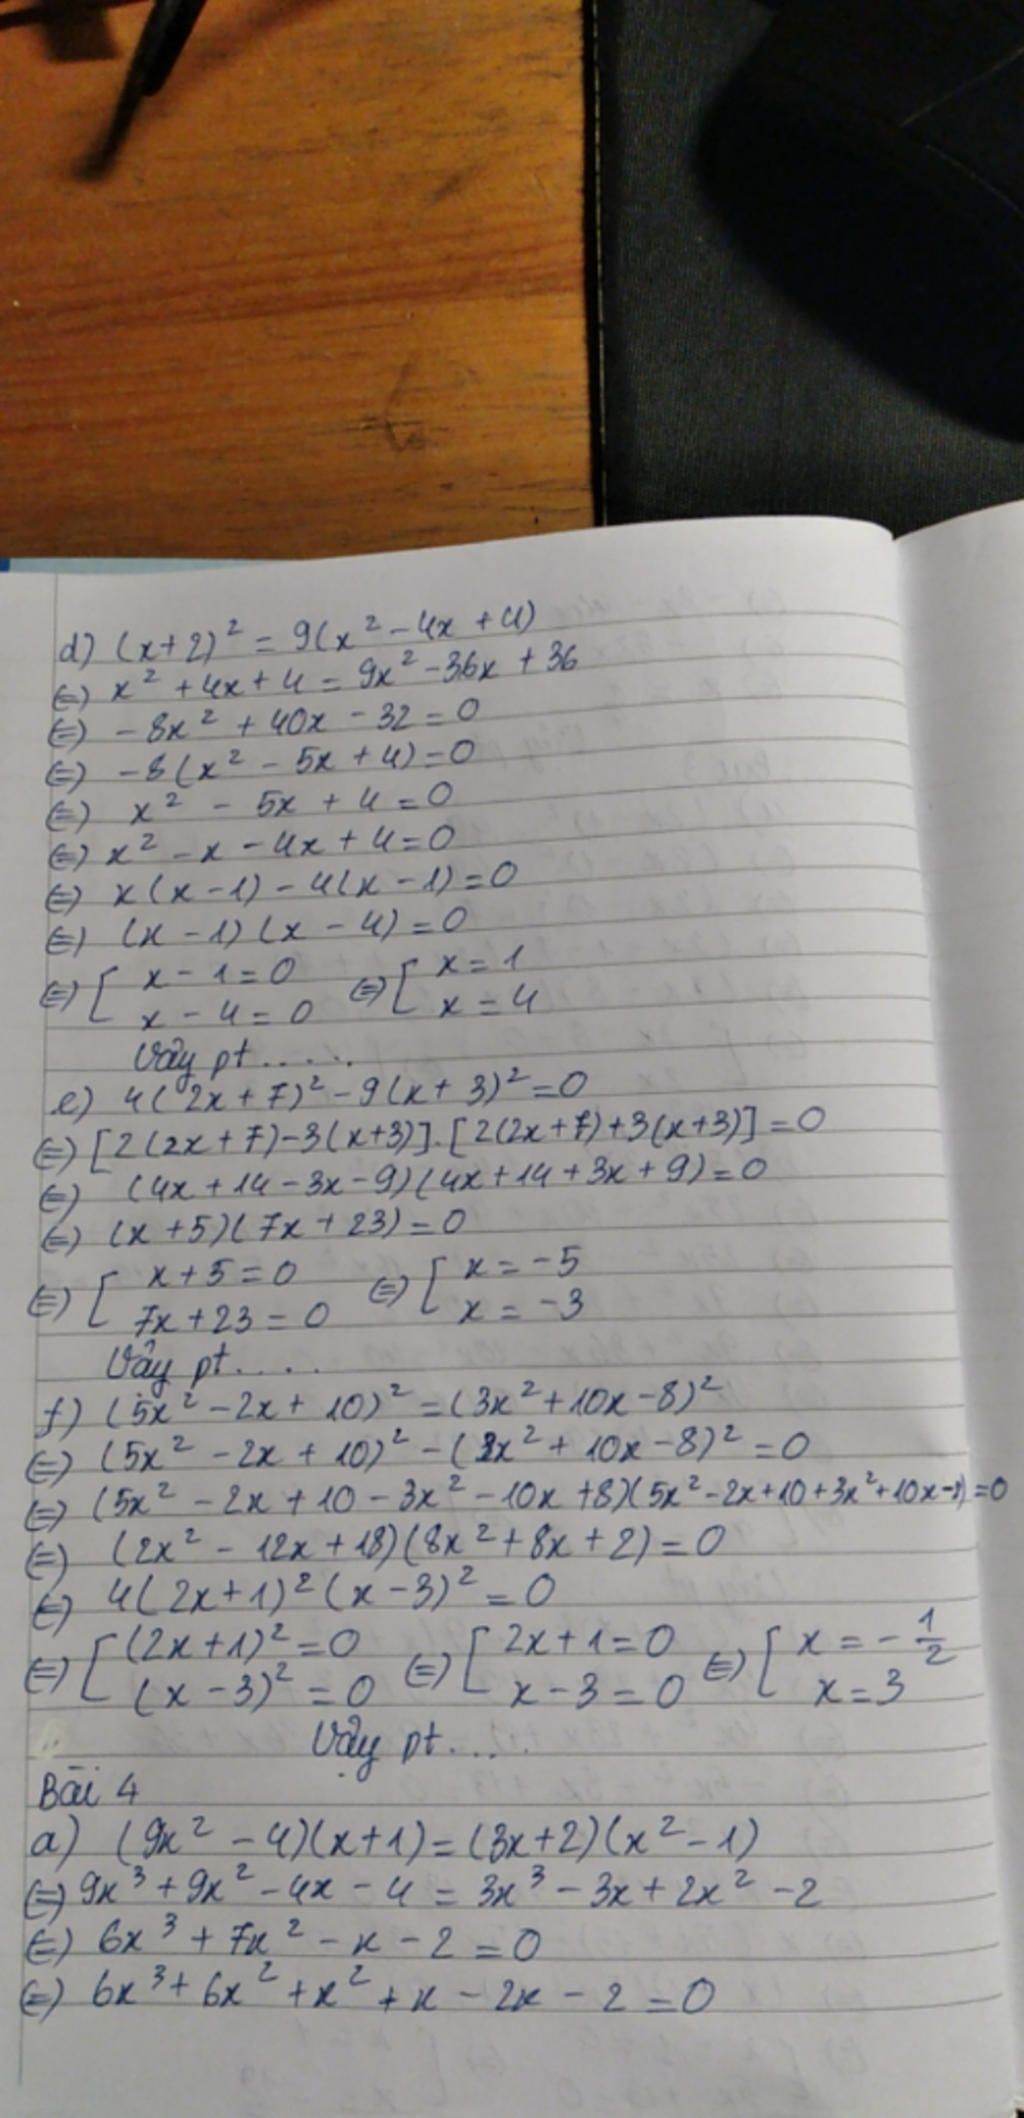 d) (x+2)² = 9(x² - 4x + 4)
⇔) x² + 4x + 4 = 9x² - 36x + 36
⇔) -8x² + 40x - 32 = 0
⇔) -8(x² - 5x + 4) = 0
⇔) x² - 5x + 4 = 0
⇔) x² - x - 4x + 4 = 0
⇔) x(x - 1) - 4(x - 1) = 0
⇔) (x - 1)(x - 4) = 0
⇔) [ x - 1 = 0 ⇔) [ x = 1
x - 4 = 0 x = 4
Vậy pt.....
e) 4(2x + 7)² - 9(x + 3)² = 0
⇔) [2(2x + 7) - 3(x+3)].[2(2x+7) + 3(x+3)] = 0
⇔) (4x + 14 - 3x - 9)(4x + 14 + 3x + 9) = 0
⇔) (x + 5)(7x + 23) = 0
⇔) [ x + 5 = 0 ⇔) [ x = -5
7x + 23 = 0 x = -3
Vậy pt....
f) (5x² - 2x + 10)² = (3x² + 10x - 8)²
⇔) (5x² - 2x + 10)² - (3x² + 10x - 8)² = 0
⇔) (5x² - 2x + 10 - 3x² - 10x + 8)(5x² - 2x + 10 + 3x² + 10x - 8) = 0
⇔) (2x² - 12x + 18)(8x² + 8x + 2) = 0
⇔) 4(2x + 1)² (x - 3)² = 0
⇔) [ (2x + 1)² = 0 ⇔) [ 2x + 1 = 0 ⇔) [ x = -1/2
(x - 3)² = 0 x - 3 = 0 x = 3
Vậy pt.....
Bài 4
a) (9x² - 4)(x + 1) = (3x + 2)(x² - 1)
⇔) 9x³ + 9x² - 4x - 4 = 3x³ - 3x + 2x² - 2
⇔) 6x³ + 7x² - x - 2 = 0
⇔) 6x³ + 6x² + x² + x - 2x - 2 = 0